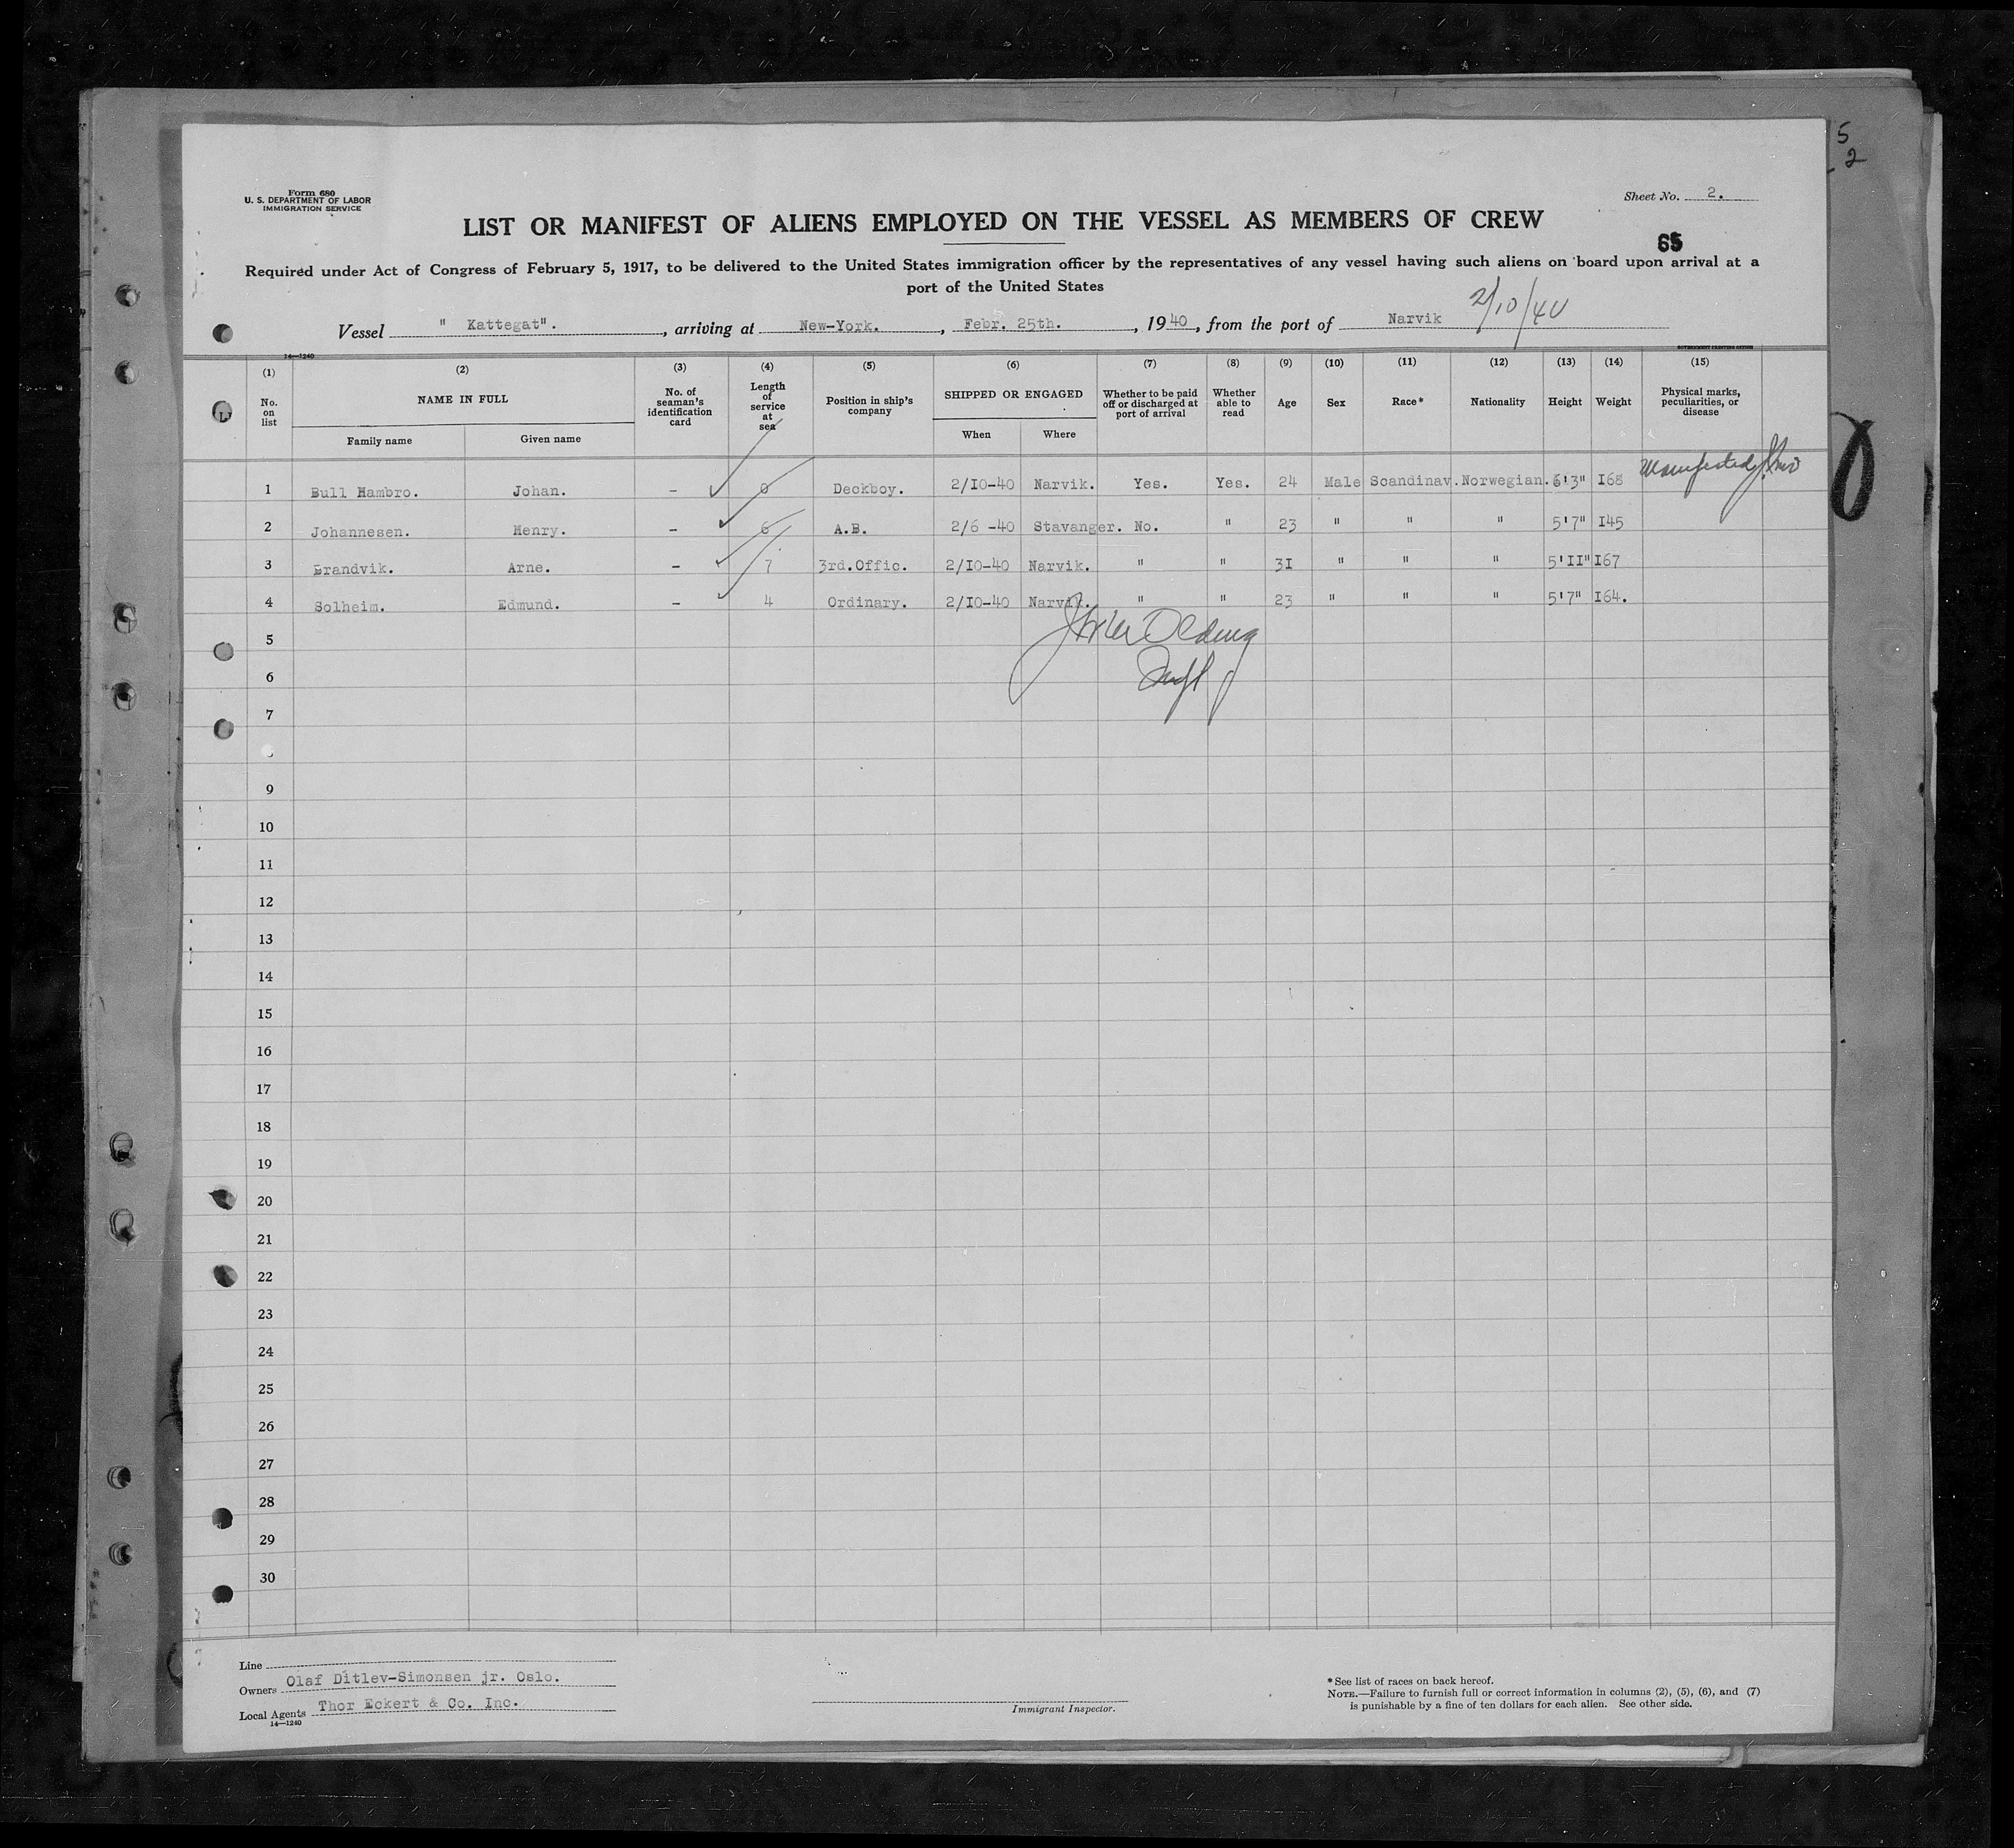 5
2
Form 680
U. S. DEPARTMENT OF LABOR
IMMIGRATION SERVICE
Sheet No. 2.
LIST OR MANIFEST OF ALIENS EMPLOYED ON THE VESSEL AS MEMBERS OF CREW
65
Required under Act of Congress of February 5, 1917, to be delivered to the United States immigration officer by the representatives of any vessel having such aliens on board upon arrival at a
port of the United States
2/10/40
Vessel " Kattegat". , arriving at New-York. , Febr. 25th. , 1940, from the port of Narvik
14—1240 GOVERNMENT PRINTING OFFICE
(1) (2) (3) (4) (5) (6) (7) (8) (9) (10) (11) (12) (13) (14) (15)
No. on list NAME IN FULL Family name Given name No. of seaman's identification card Length of service at sea Position in ship's company SHIPPED OR ENGAGED When Where Whether to be paid off or discharged at port of arrival Whether able to read Age Sex Race* Nationality Height Weight Physical marks, peculiarities, or disease
Manifested
1 Bull Hambro. Johan. - 0 Deckboy. 2/I0-40 Narvik. Yes. Yes. 24 Male Scandinav. Norwegian. 6'3" I68
2 Johannesen. Henry. - 6 A.B. 2/6 -40 Stavanger. No. " 23 " " " 5'7" I45
3 Brandvik. Arne. - 7 3rd.Offic. 2/I0-40 Narvik. " " 3I " " " 5'II" I67
4 Solheim. Edmund. - 4 Ordinary. 2/I0-40 Narvik. " " 23 " " " 5'7" I64.
5
6
7
9
10
11
12
13
14
15
16
17
18
19
20
21
22
23
24
25
26
27
28
29
30
Line
Owners Olaf Ditlev-Simonsen jr. Oslo.
Local Agents Thor Eckert & Co. Inc.
14—1240
Immigrant Inspector.
* See list of races on back hereof.
NOTE.—Failure to furnish full or correct information in columns (2), (5), (6), and (7)
is punishable by a fine of ten dollars for each alien. See other side.